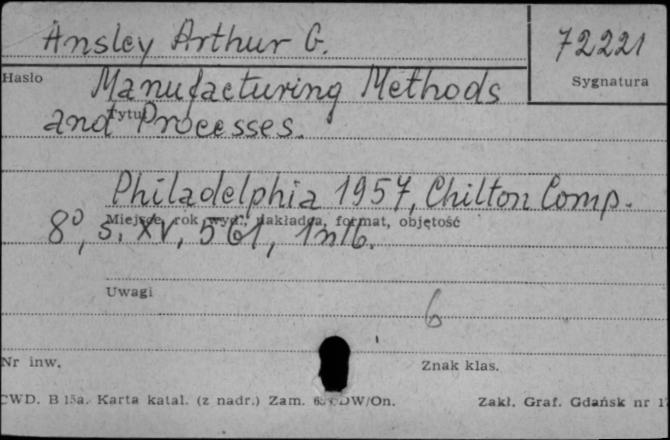 Ansley Arthur G.
72221
Hasło
Sygnatura
Manufacturing Methods
and Processes.
Tytuł
Philadelphia 1957, Chilton Comp.
Miejsce, rok wyd., nakładca, format, objętość
8°, s. XV, 561, 1nlb.
Uwagi
6
Nr inw.
Znak klas.
CWD. B 15a. Karta katal. (z nadr.) Zam. DW/On.
Zakł. Graf. Gdańsk nr